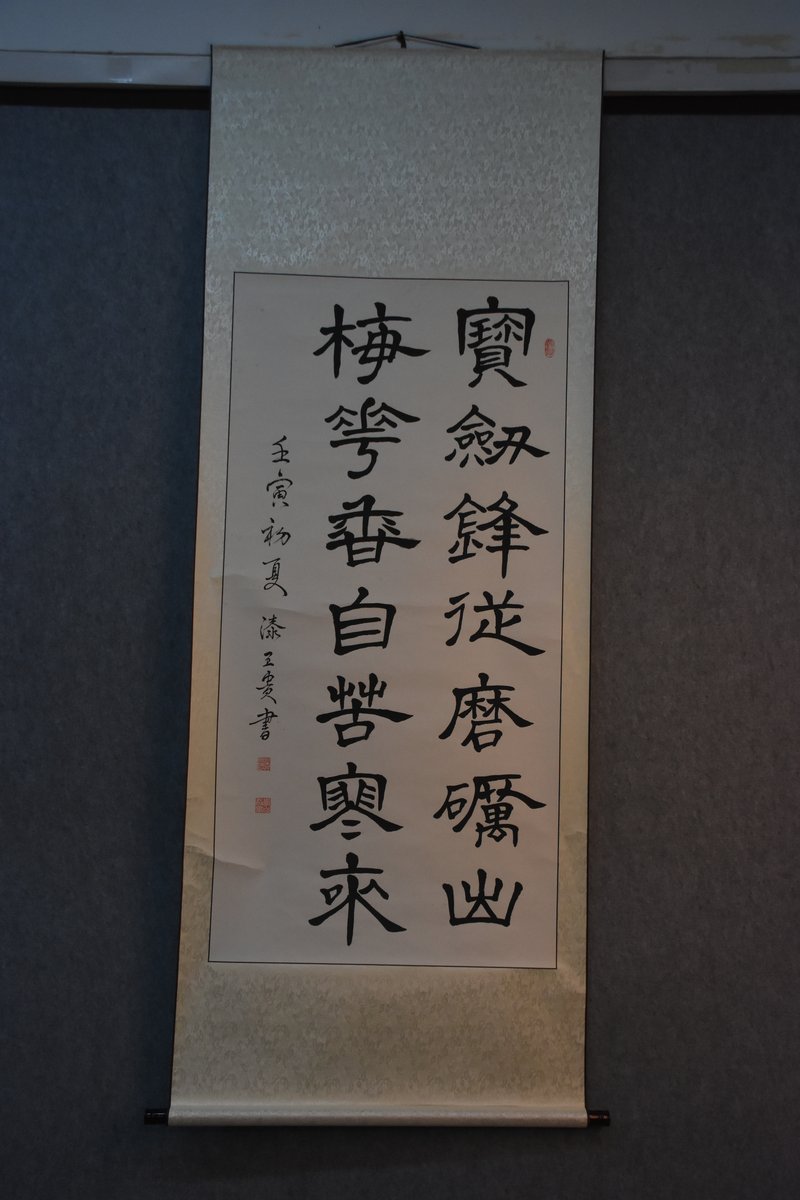 寶劒鋒従磨礪出
梅花香自苦寒來
壬寅初夏 漆玉貴書